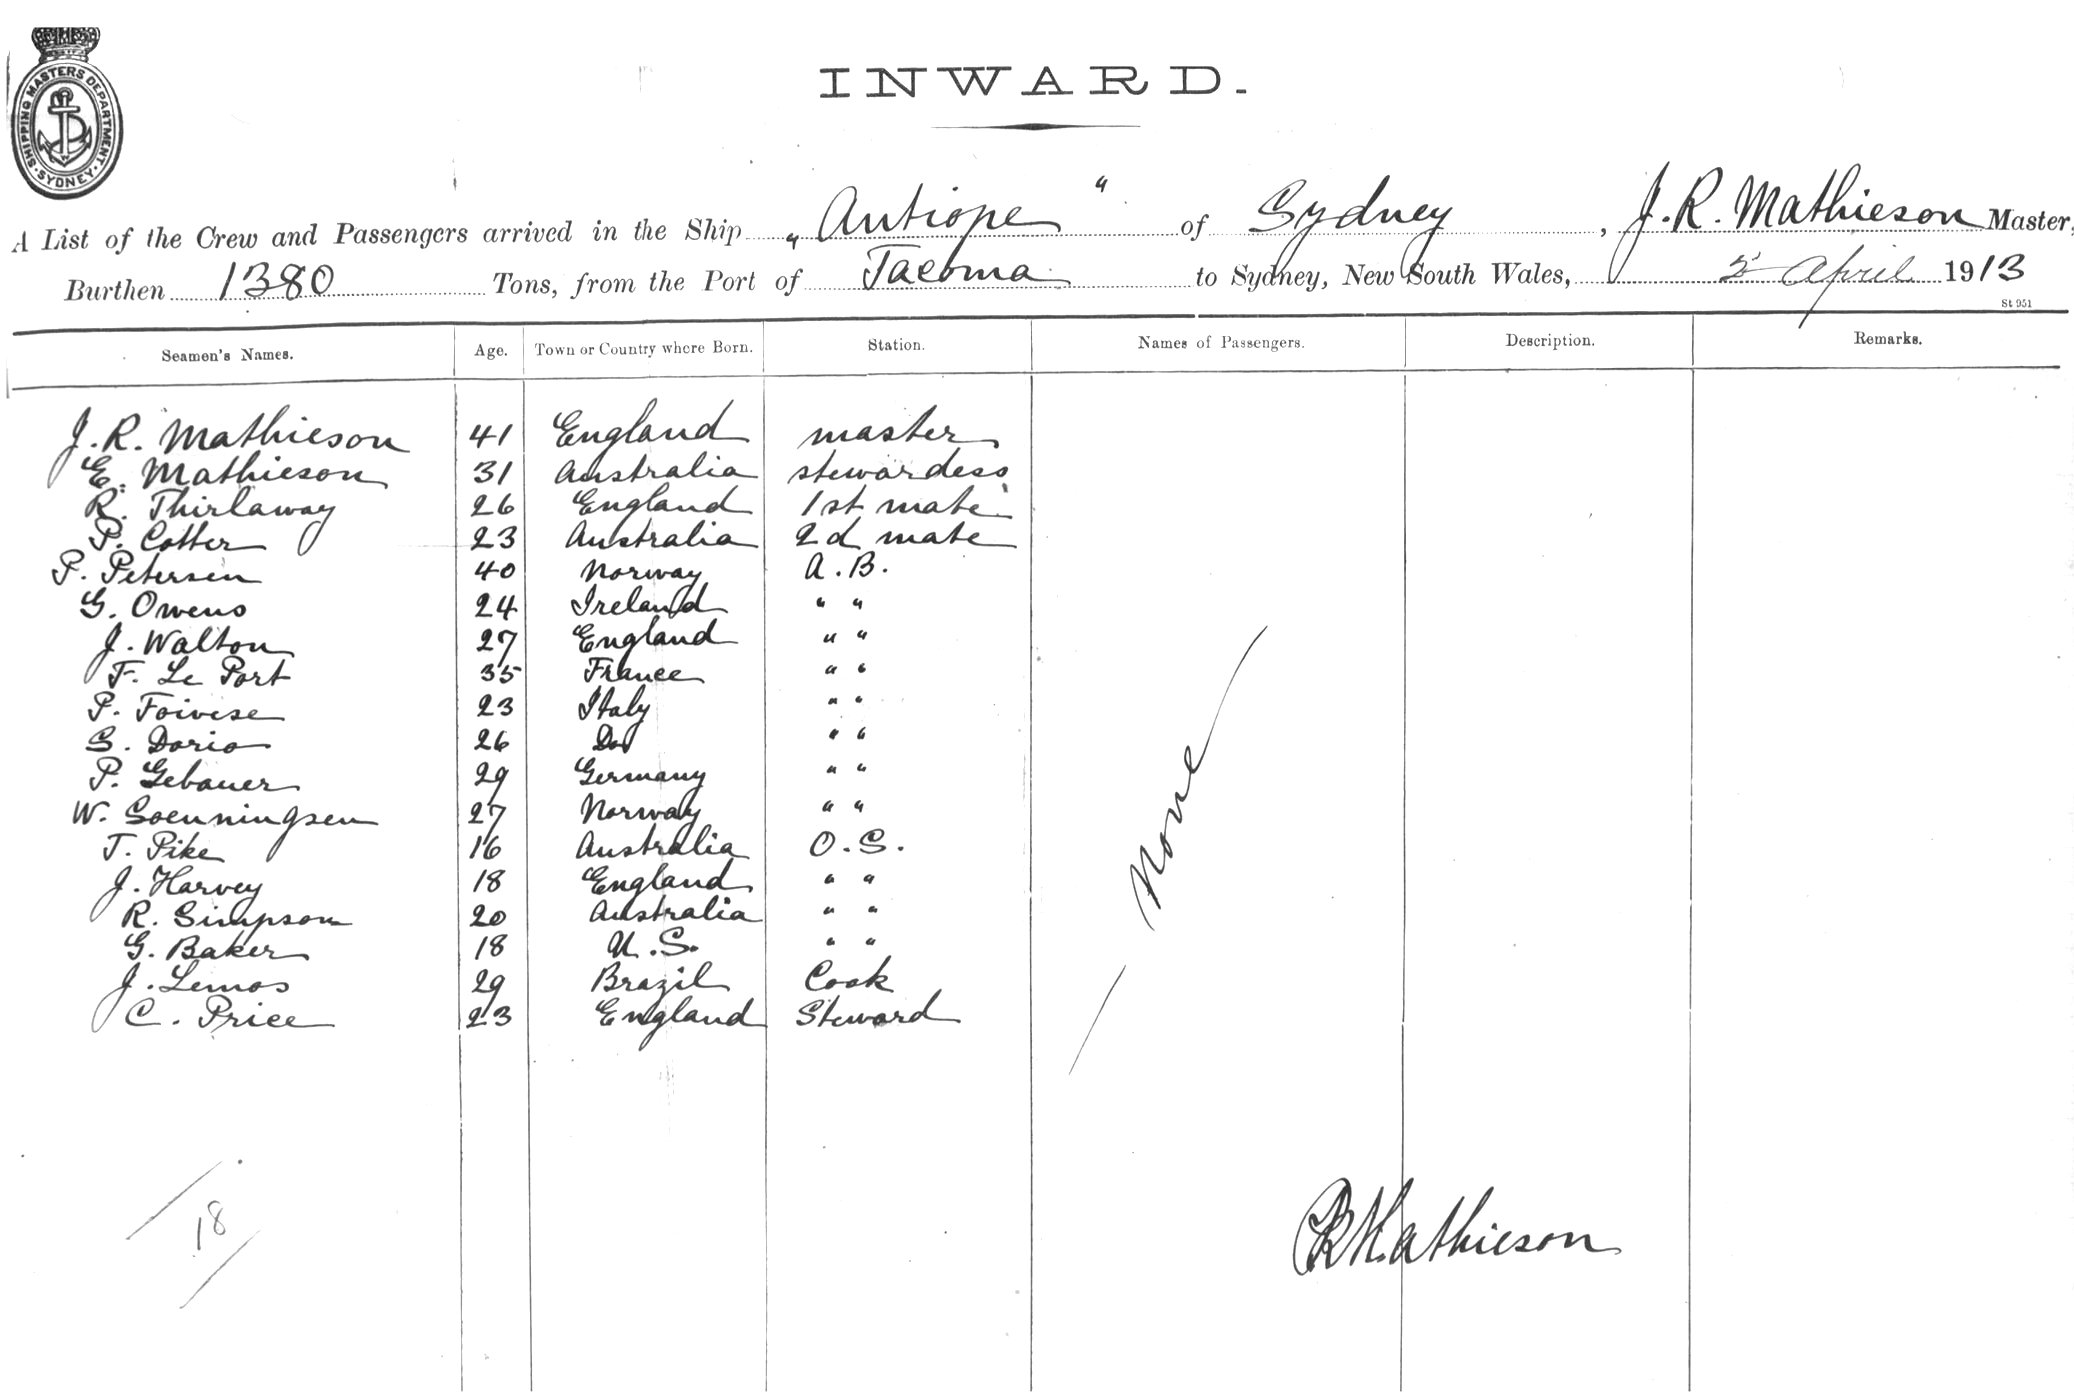 SHIPPING MASTERS DEPARTMENT. SYDNEY.
INWARD.
A List of the Crew and Passengers arrived in the Ship "Antiope" of Sydney, J. R. Mathieson Master,
Burthen 1380 Tons, from the Port of Tacoma to Sydney, New South Wales, April 1913
St 951
Seamen's Names. Age. Town or Country where Born. Station. Names of Passengers. Description. Remarks.
J. R. Mathieson 41 England master
E. Mathieson 31 Australia stewardess
R. Thirlaway 26 England 1st mate
P. Cotter 23 Australia 2d mate
P. Petersen 40 Norway A.B.
G. Owens 24 Ireland " "
J. Walton 27 England " "
F. Le Port 35 France " "
P. Foivese 23 Italy " "
S. Dorio 26 Do " "
P. Gebauer 29 Germany " "
W. Soenningsen 27 Norway " "
T. Pike 16 Australia O.S.
J. Harvey 18 England " "
R. Simpson 20 Australia " "
G. Baker 18 U.S. " "
J. Lemos 29 Brazil Cook
C. Price 23 England Steward
None
18
JRMathieson